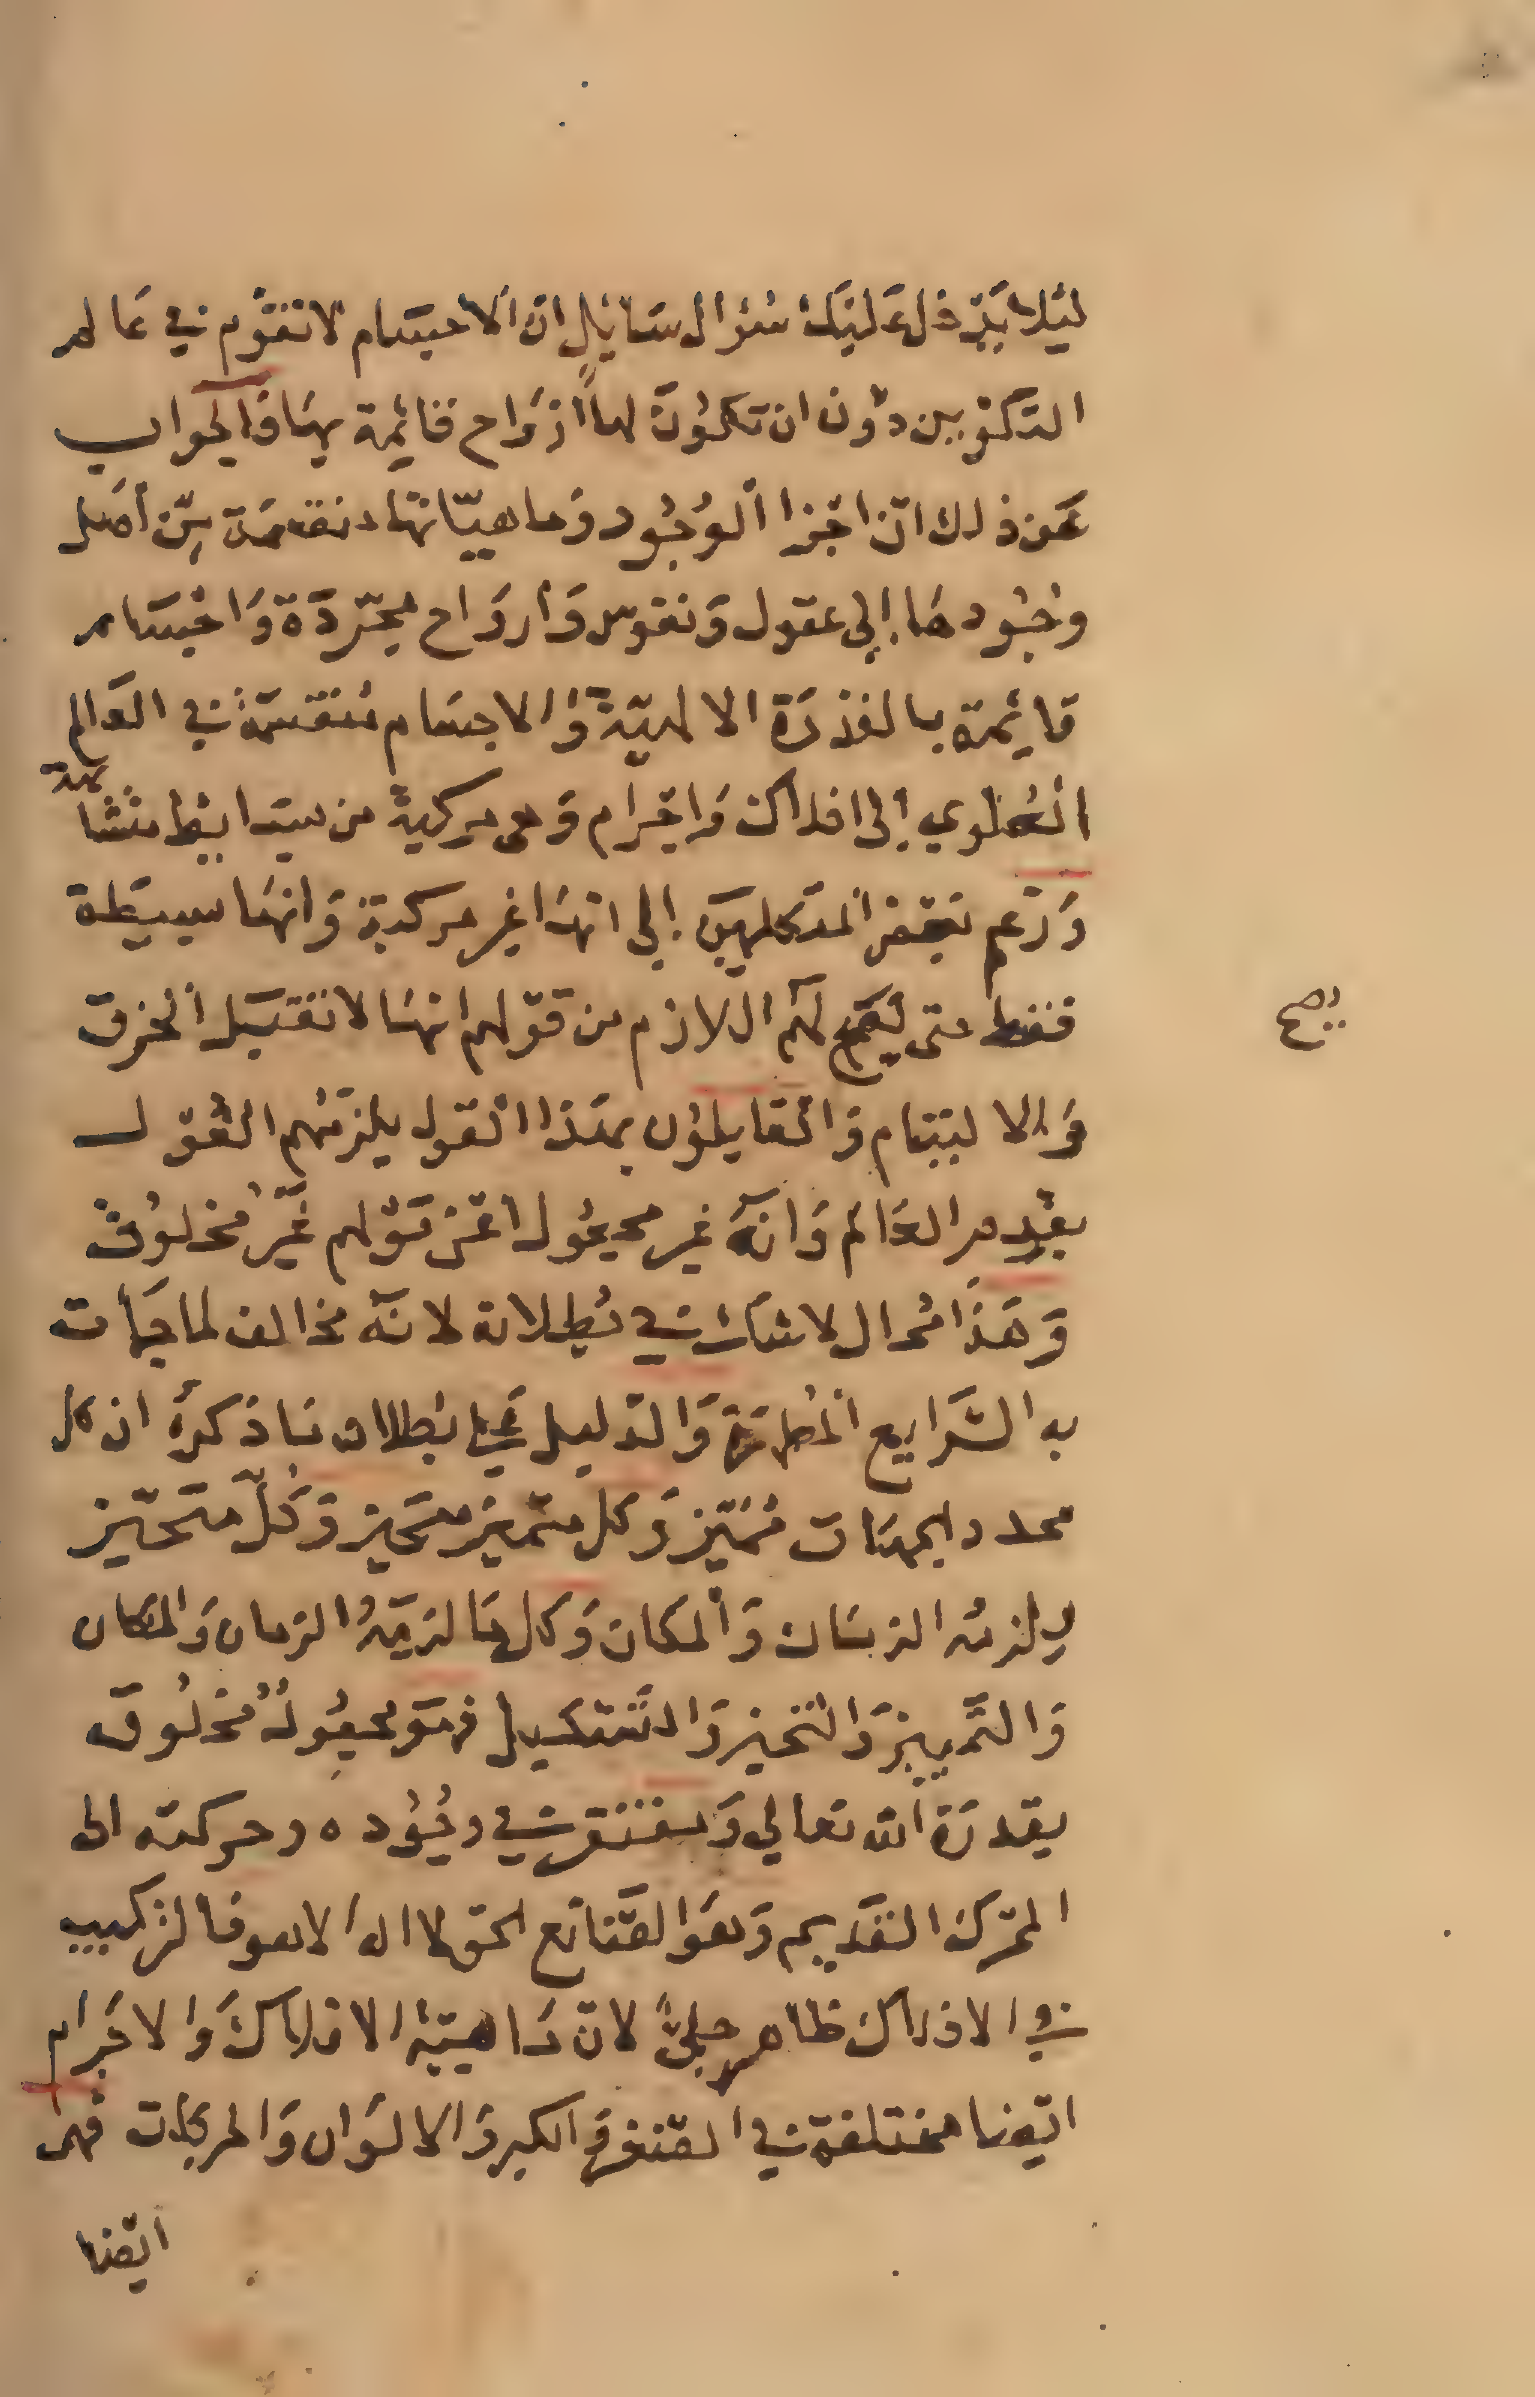 ليلا يدخل عليك سؤال سايل ان الاجسام لا تقوم في عالم
التكوين دون ان تكون لها ارواح قائمة بها فالجواب
عن ذلك ان اجزا الوجود وماهياتها منقسمة من أصل
وجودها إلى عقول ونفوس وأرواح مجردة واجسام
قائمة بالقدرة الالهية والاجسام منقسمة في العالم
العلوي إلى افلاك واجرام وهي مركبة من بسايط متشابهة
وزعم بعض المتكلمين إلى انها غير مركبة وانها بسيطة
فقط حتى يصح لهم اللازم من قولهم انها لا تقبل الخرق
والالتيام والقايلون بهذا القول يلزمهم القول
بقدم العالم وانه غير مجعول اعني قولهم غير مخلوق
وهذا محال لا شك في بطلانه لانه مخالف لما جأت
به الشرايع المطهرة والدليل على بطلان ما ذكره ان كل
محدد بالجهات متميز وكل متميز متحيز وكل متحيز
يلزمه الزمان والمكان وكل ما لزمه الزمان والمكان
والتمييز والتحيز والتشكيل فهو مجعول مخلوق
بقدرة الله تعالى ومفتقر في وجوده وحركته الى
المحرك القديم وهو الصانع الحق لا اله الا هو فالتركيب
في الافلاك ظاهر جلي لان ماهية الافلاك والاجرام
ايضا مختلفة في الصغر والكبر والالوان والحركات فهي
ايضا
يصح